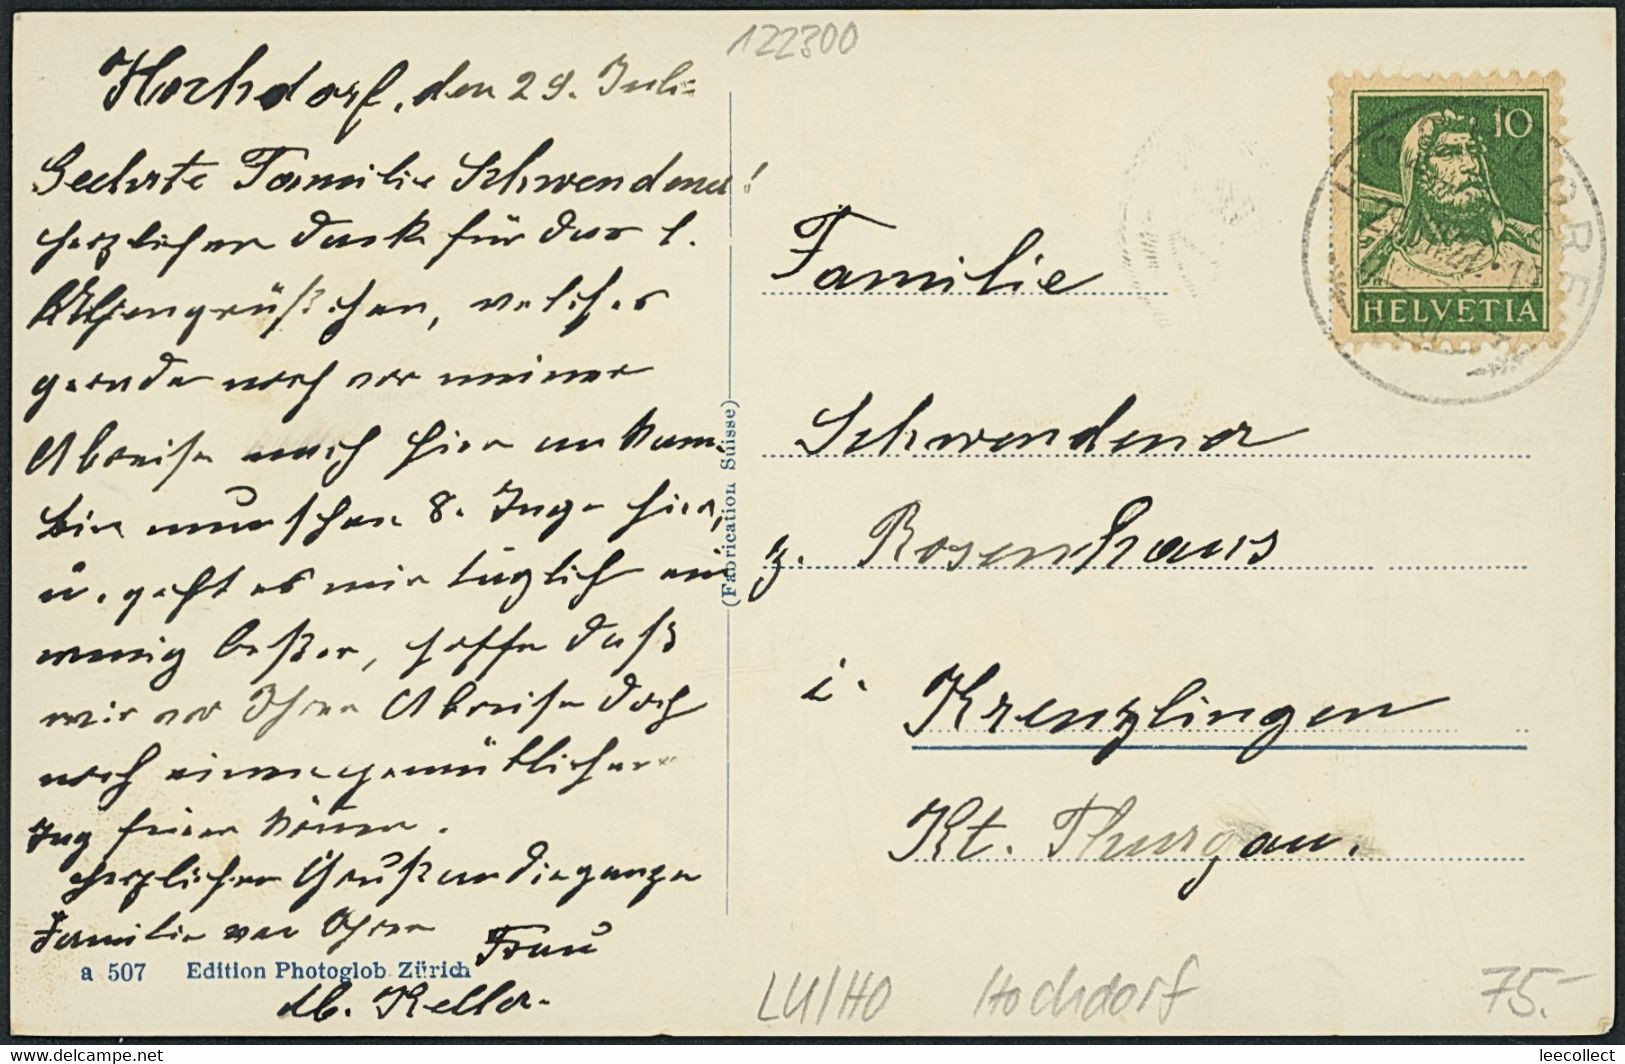 122300
Hochdorf, den 29. Juli
Geehrte Familie Schwendener!
herzlichen Dank für das l.
Alpengrüßchen, welches
gerade noch vor meiner
Abreise nach hier ankam.
Bin nun schon 8. Tage hier,
u. geht es mir täglich ein
wenig beßer, hoffe daß
wir vor Ihrer Abreise doch
noch einen gemütlichen
Tag feiern können.
herzlichen Gruß an die ganze
Familie von Ihrer
Frau
Keller.
a 507 Edition Photoglob Zürich
(Fabrication Suisse)
10
HELVETIA
HOCHDORF
Familie
Schwendener
z. Rosenhaus
i. Kreuzlingen
Kt. Thurgau.
LU/HO Hochdorf 75.-
leecollect